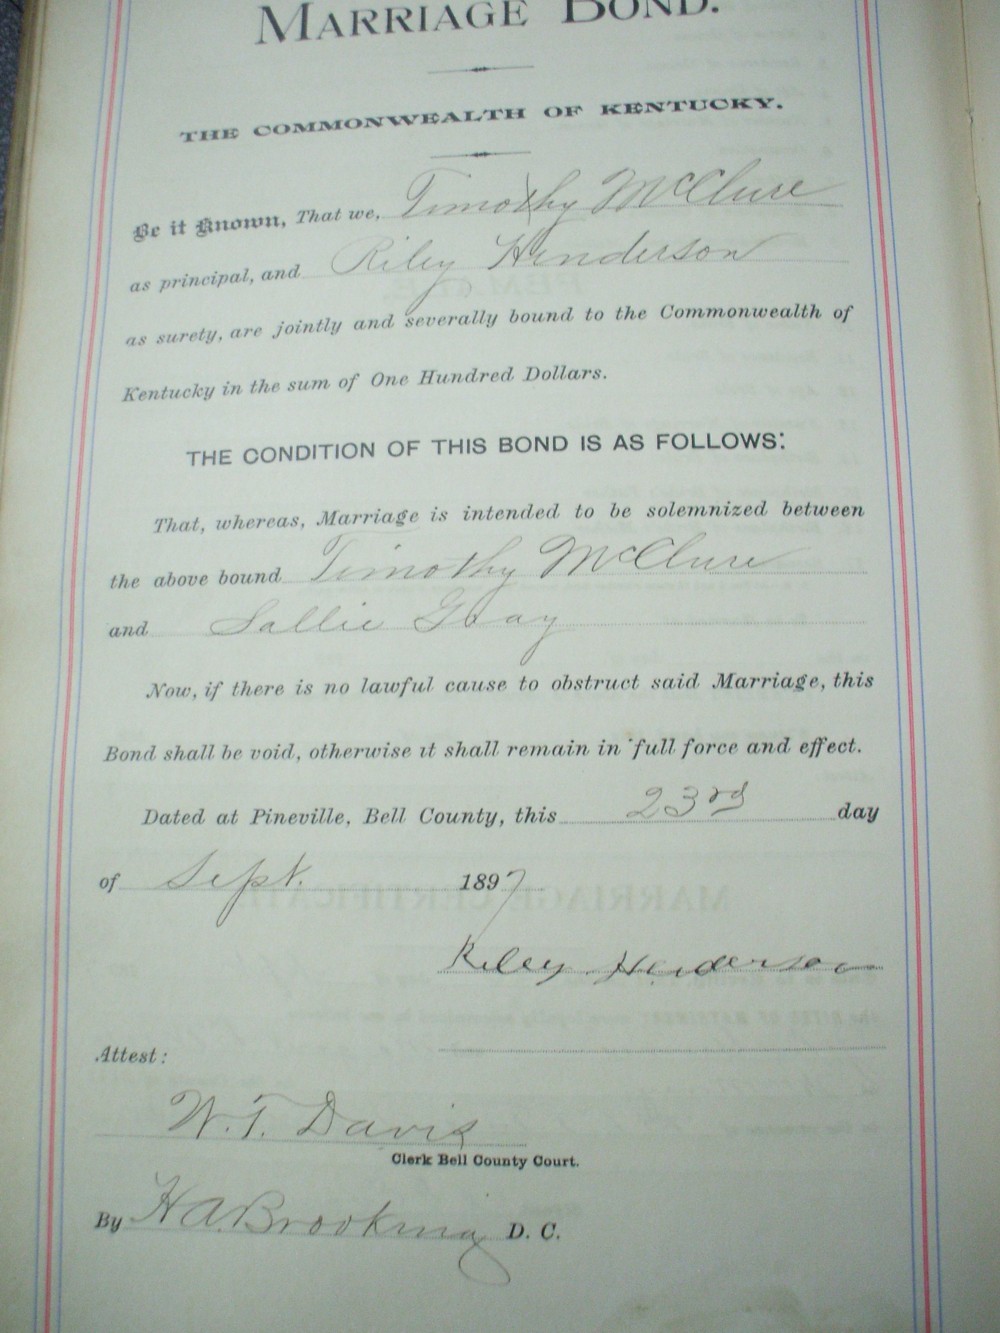 MARRIAGE BOND.
THE COMMONWEALTH OF KENTUCKY.
Be it Known, That we, Timothy McClure
as principal, and Riley Henderson
as surety, are jointly and severally bound to the Commonwealth of
Kentucky in the sum of One Hundred Dollars.
THE CONDITION OF THIS BOND IS AS FOLLOWS:
That, whereas, Marriage is intended to be solemnized between
the above bound Timothy McClure
and Sallie Gray
Now, if there is no lawful cause to obstruct said Marriage, this
Bond shall be void, otherwise it shall remain in full force and effect.
Dated at Pineville, Bell County, this 23rd day
of Sept. 1897
Riley Henderson
Attest:
W. T. Davis
Clerk Bell County Court.
By H A. Brooking D. C.